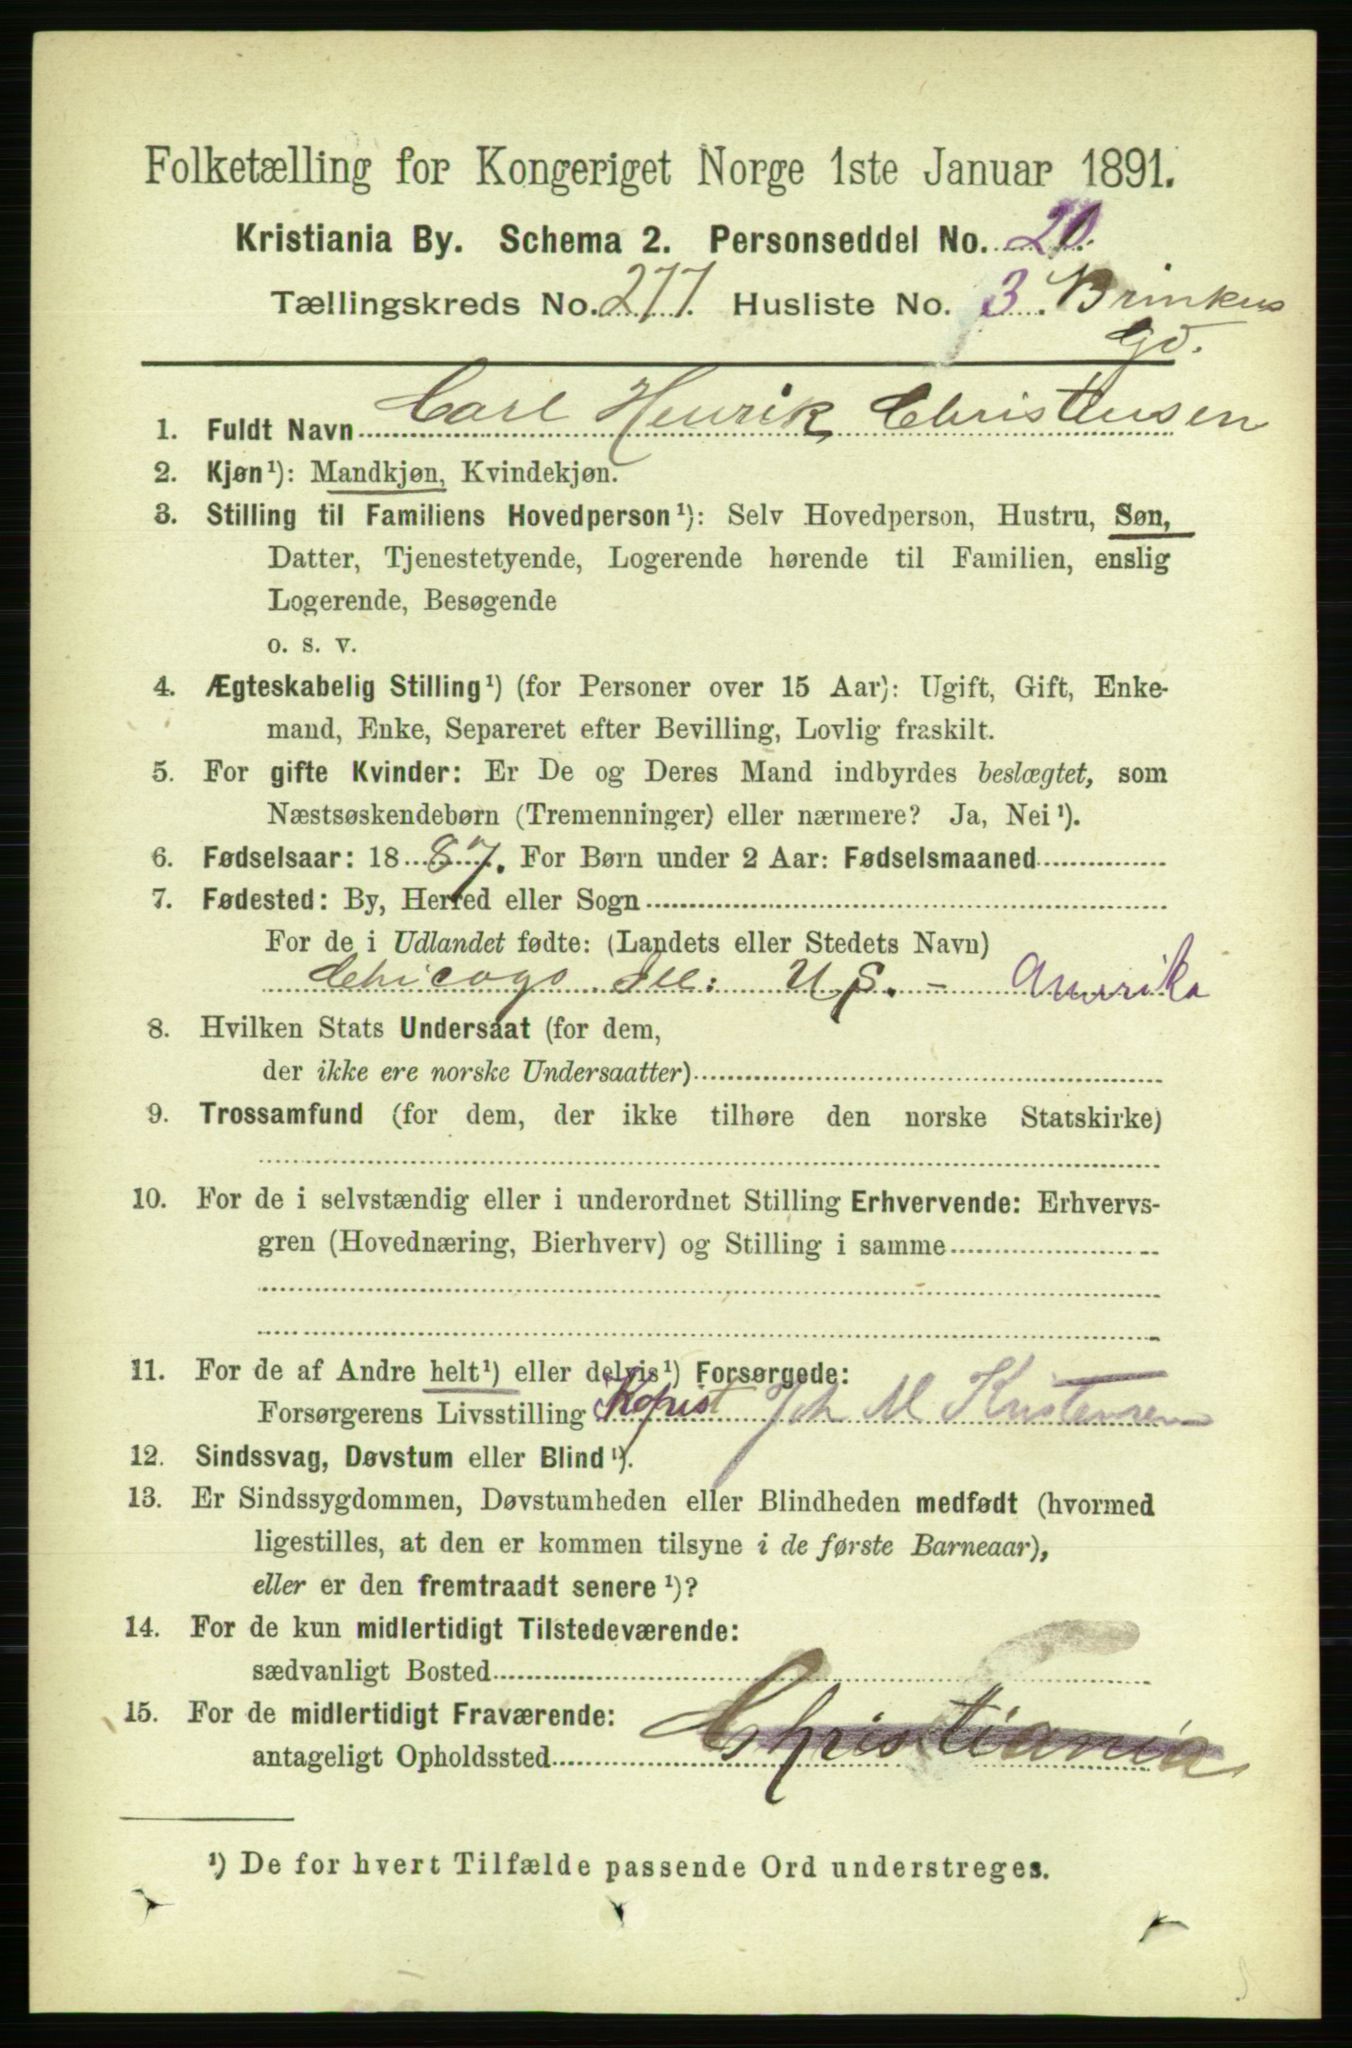 Folketælling for Kongeriget Norge 1ste Januar 1891.
Kristiania By. Schema 2. Personseddel No. 20.
Tællingskreds No. 277. Husliste No. 3. Brinkens
Gd.
1. Fuldt Navn Carl Henrik Christensen
2. Kjøn¹): Mandkjøn, Kvindekjøn.
3. Stilling til Familiens Hovedperson¹): Selv Hovedperson, Hustru, Søn,
Datter, Tjenestetyende, Logerende hørende til Familien, enslig
Logerende, Besøgende
o. s. v.
4. Ægteskabelig Stilling¹) (for Personer over 15 Aar): Ugift, Gift, Enke-
mand, Enke, Separeret efter Bevilling, Lovlig fraskilt.
5. For gifte Kvinder: Er De og Deres Mand indbyrdes beslægtet, som
Næstsøskendebørn (Tremenninger) eller nærmere? Ja, Nei¹).
6. Fødselsaar: 1887. For Børn under 2 Aar: Fødselsmaaned
7. Fødested: By, Herred eller Sogn
For de i Udlandet fødte: (Landets eller Stedets Navn)
Chicago. Ill: U. S. - Amerika
8. Hvilken Stats Undersaat (for dem,
der ikke ere norske Undersaatter)
9. Trossamfund (for dem, der ikke tilhøre den norske Statskirke)
10. For de i selvstændig eller i underordnet Stilling Erhvervende: Erhvervs-
gren (Hovednæring, Bierhverv) og Stilling i samme
11. For de af Andre helt¹) eller delvis¹) Forsørgede:
Forsørgerens Livsstilling Kopist Joh M Kristensen
12. Sindssvag, Døvstum eller Blind¹).
13. Er Sindssygdommen, Døvstumheden eller Blindheden medfødt (hvormed
ligestilles, at den er kommen tilsyne i de første Barneaar),
eller er den fremtraadt senere¹)?
14. For de kun midlertidigt Tilstedeværende:
sædvanligt Bosted
15. For de midlertidigt Fraværende:
antageligt Opholdssted Christiania
¹) De for hvert Tilfælde passende Ord understreges.